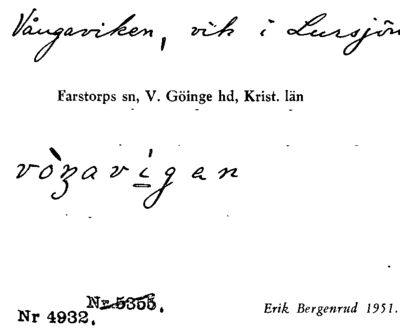 Vångaviken, vik i Lursjön
Farstorps sn, V. Göinge hd, Krist. län
vòŋavi̲gan
Nr 5355.
Nr 4932.
Erik Bergenrud 1951.